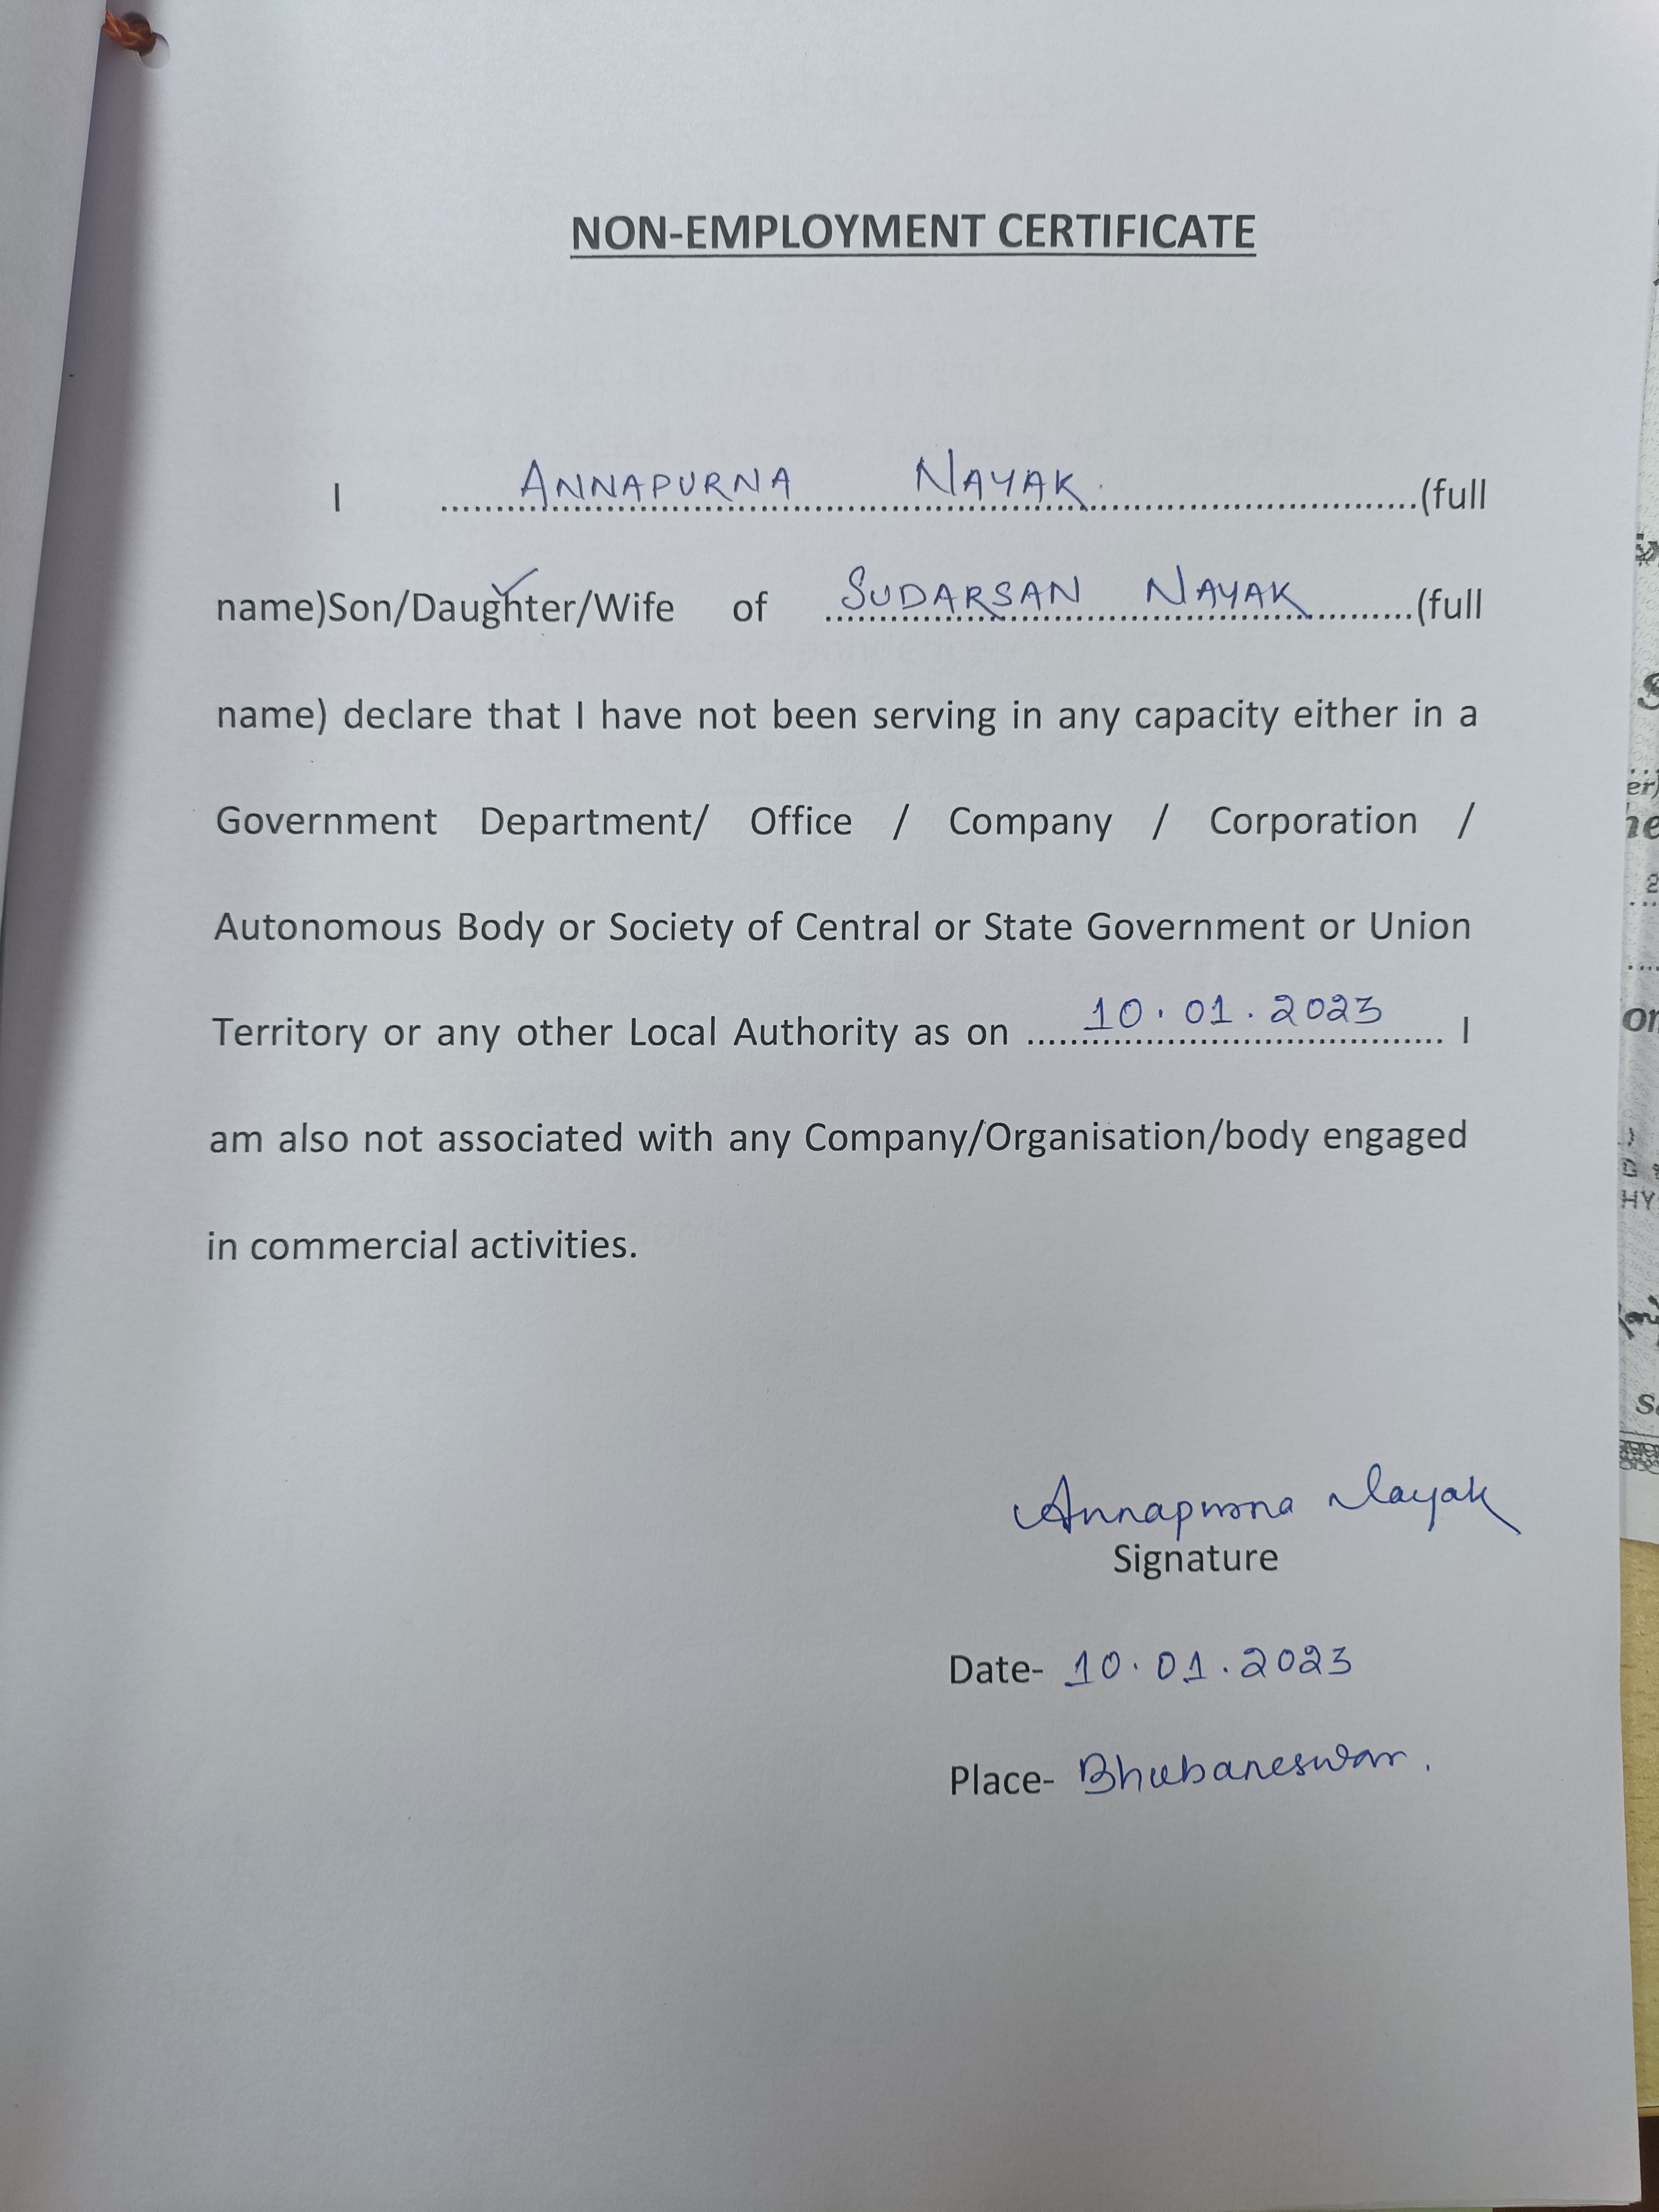 NON-EMPLOYMENT CERTIFICATE
I ANNAPURNA NAYAK. (full
name)Son/Daughter/Wife of SUDARSAN NAYAK (full
name) declare that I have not been serving in any capacity either in a
Government Department/ Office / Company / Corporation /
Autonomous Body or Society of Central or State Government or Union
Territory or any other Local Authority as on 10.01.2023 I
am also not associated with any Company/Organisation/body engaged
in commercial activities.
Annapurna Nayak
Signature
Date- 10.01.2023
Place- Bhubaneswar.